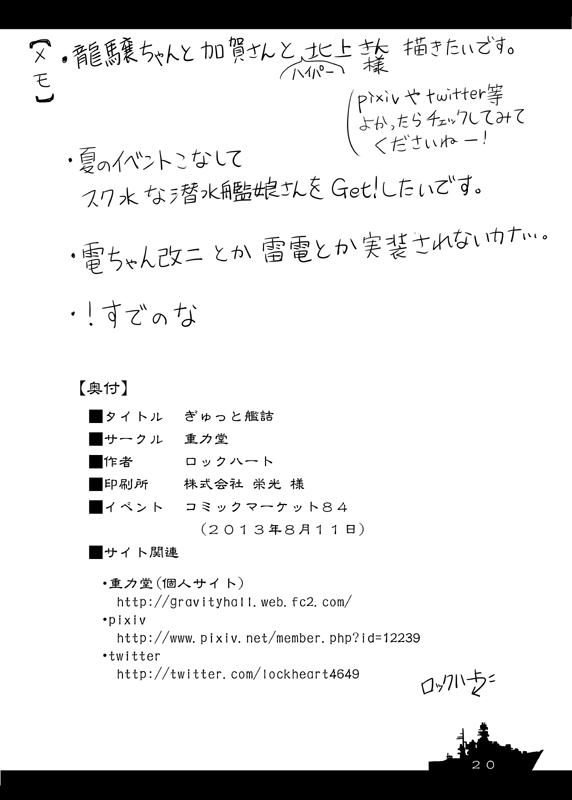 【メモ】
・龍驤ちゃんと加賀さんと北上さん 描きたいです。
ハイパー 様
pixivやtwitter等
よかったらチェックしてみて
くださいねー！
・夏のイベントこなして
スク水な潜水艦娘さんをGet!したいです。
・電ちゃん改二とか雷電とか実装されないカナ…。
・！すでのな
【奥付】
■タイトル ぎゅっと艦詰
■サークル 重力堂
■作者 ロックハート
■印刷所 株式会社 栄光 様
■イベント コミックマーケット８４
（２０１３年８月１１日）
■サイト関連
・重力堂(個人サイト)
http://gravityhall.web.fc2.com/
・pixiv
http://www.pixiv.net/member.php?id=12239
・twitter
http://twitter.com/lockheart4649
ロックハート
20